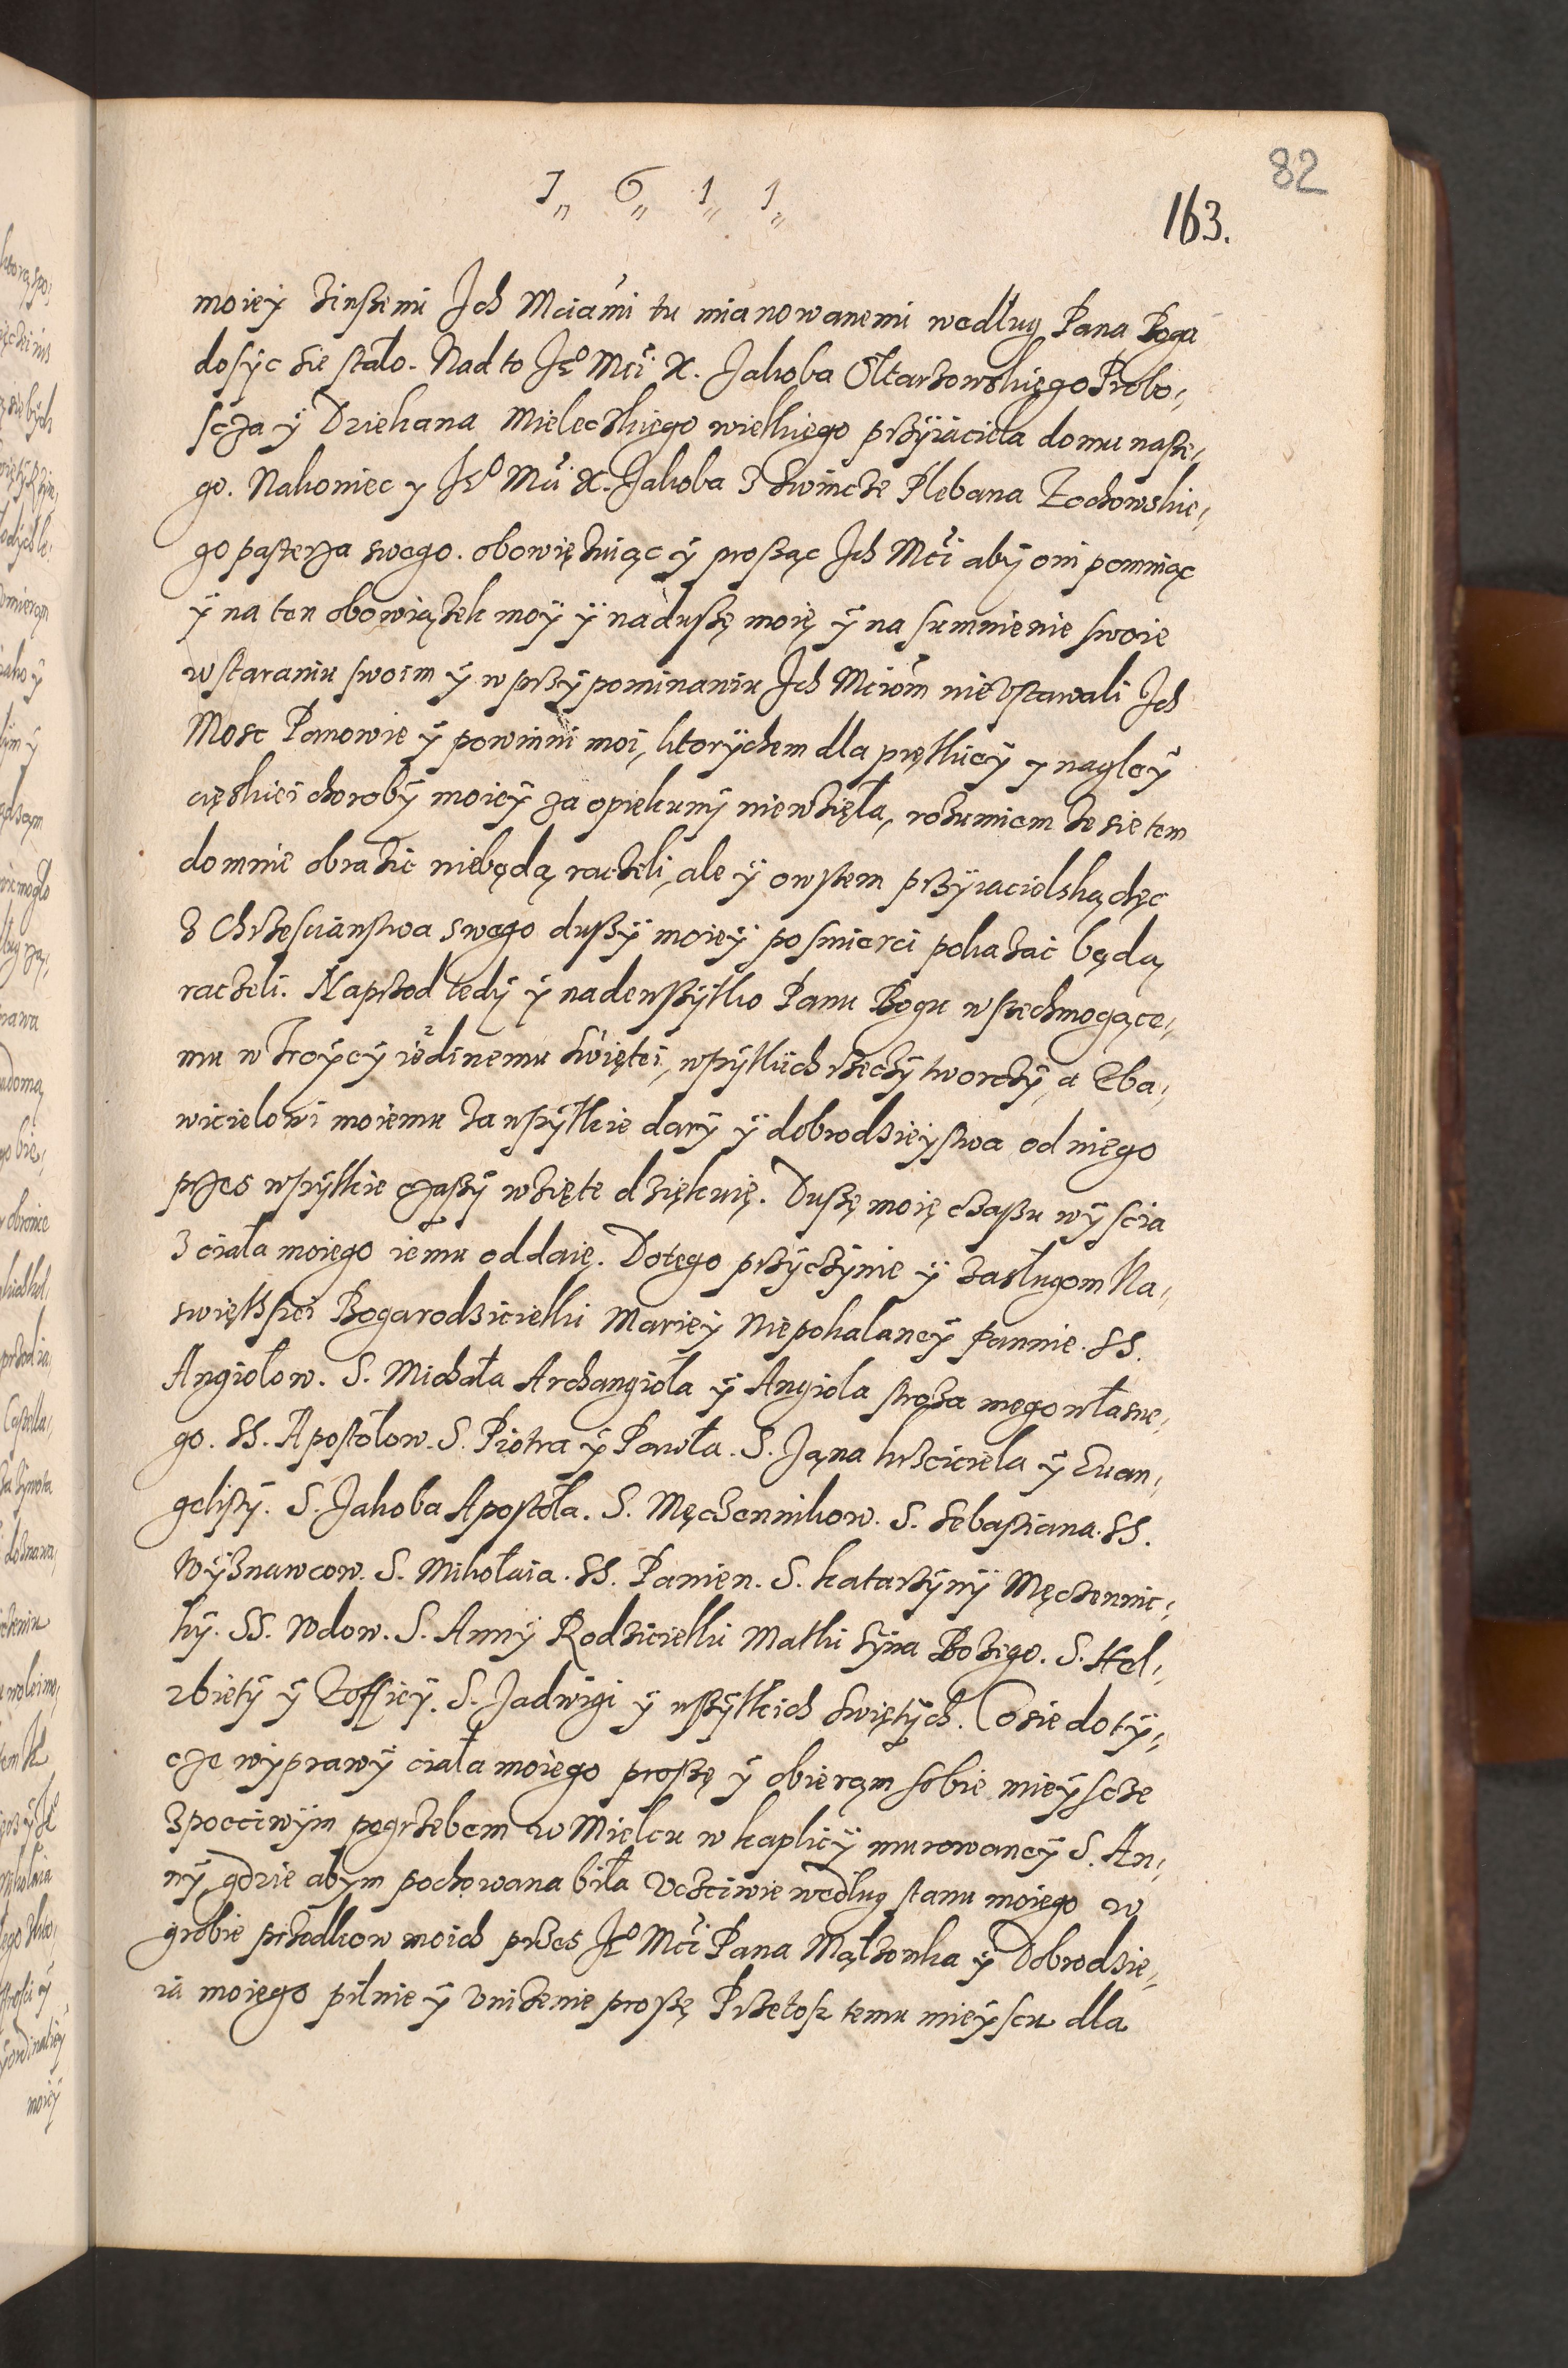 82
1„ 6„ 1„ 1„
163.
moieÿ zinszemi Ich Mciami tu mianowanemi wedlug Pana Boga
dosÿc sie stało. Nad to Jeo Mći X. Jakoba Ołtarzowskięgo Probo„
scza ÿ Dziekana Mieleczkięgo wielkięgo przÿiaciela domu nasze„
go. Nakoniec y Jeo Mći X. Jakoba z Zwincze Plebana Zochowskie„
go pasterza swego. obowięzuiąc ÿ prosząc Ich Mći abÿ oni pomniąc
ÿ na ten obowiązek moÿ ÿ na duszę moię ÿ na sumnienie swoie
w staraniu swoim ÿ w przÿpominaniu Ich Mciom nie Vstawali Ich
Mosc Panowie ÿ powinni moi, ktorÿchem dla prętkieÿ y nagleÿ
cięskiei chorobÿ moieÿ za opiekunÿ nie wzięła, rozumiem ze sie tem
do mnie obrazic niebędą raczeli, ale ÿ owszem przÿiacielską chęc
z Chrzescianstwa swego duszÿ moieÿ po smierci pokazać będą
raczeli. Naprzod tedÿ ÿ nadewszÿtko Panu Bogu wszechmogące„
mu w Troÿcÿ iedinemu swiętei, wszÿtkich rzeczÿ tworczÿ, a Zba„
wicielowi moiemu za wszÿtkie darÿ ÿ dobrodzieÿstwa od niego
przes wszÿtkie czaszÿ wzięte dziękuię. Duszę moię czaszu wÿscia
z ciała moiego iemu oddaię. Do tego przÿczÿnie ÿ zasługom Na„
swiętszei Bogarodzicielki Marieÿ Niepokalaneÿ pannie. SS.
Angiołow. S. Michała Archangioła ÿ Angiola stroza mego własne„
go. SS. Apostołow. S. Piotra ÿ Pawła. S. Jana krzciciela ÿ Ewan„
gelistÿ. S. Jakoba Apostoła. S. Męczennikow. S. Sebastiana. SS.
Wÿznawcow. S. Mikołaia. SS. Panien. S. Katarzÿnÿ Męczennic„
kÿ. SS. Wdow. S. Annÿ Rodzicielki Matki Sÿna Bozego. S. Hel„
zbietÿ ÿ Zoffieÿ. S. Jadwigi ÿ wszÿtkich swiętÿch. Co sie dotÿ„
cze wÿprawÿ ciała moiego proszę ÿ obieram sobie mieÿscze
z poccziwÿm pogrzebem w Mielcu w kaplicÿ murowaneÿ S. An„
nÿ gdzie abym pochowana biła Vcziwie wedlug stanu moiego w
grobie przodkow moich przes Jeo Mći Pana Małzonka ÿ Dobrodzie„
ia moiego pilnie ÿ Vnizenie proszę Przetosz temu mieÿscu dla